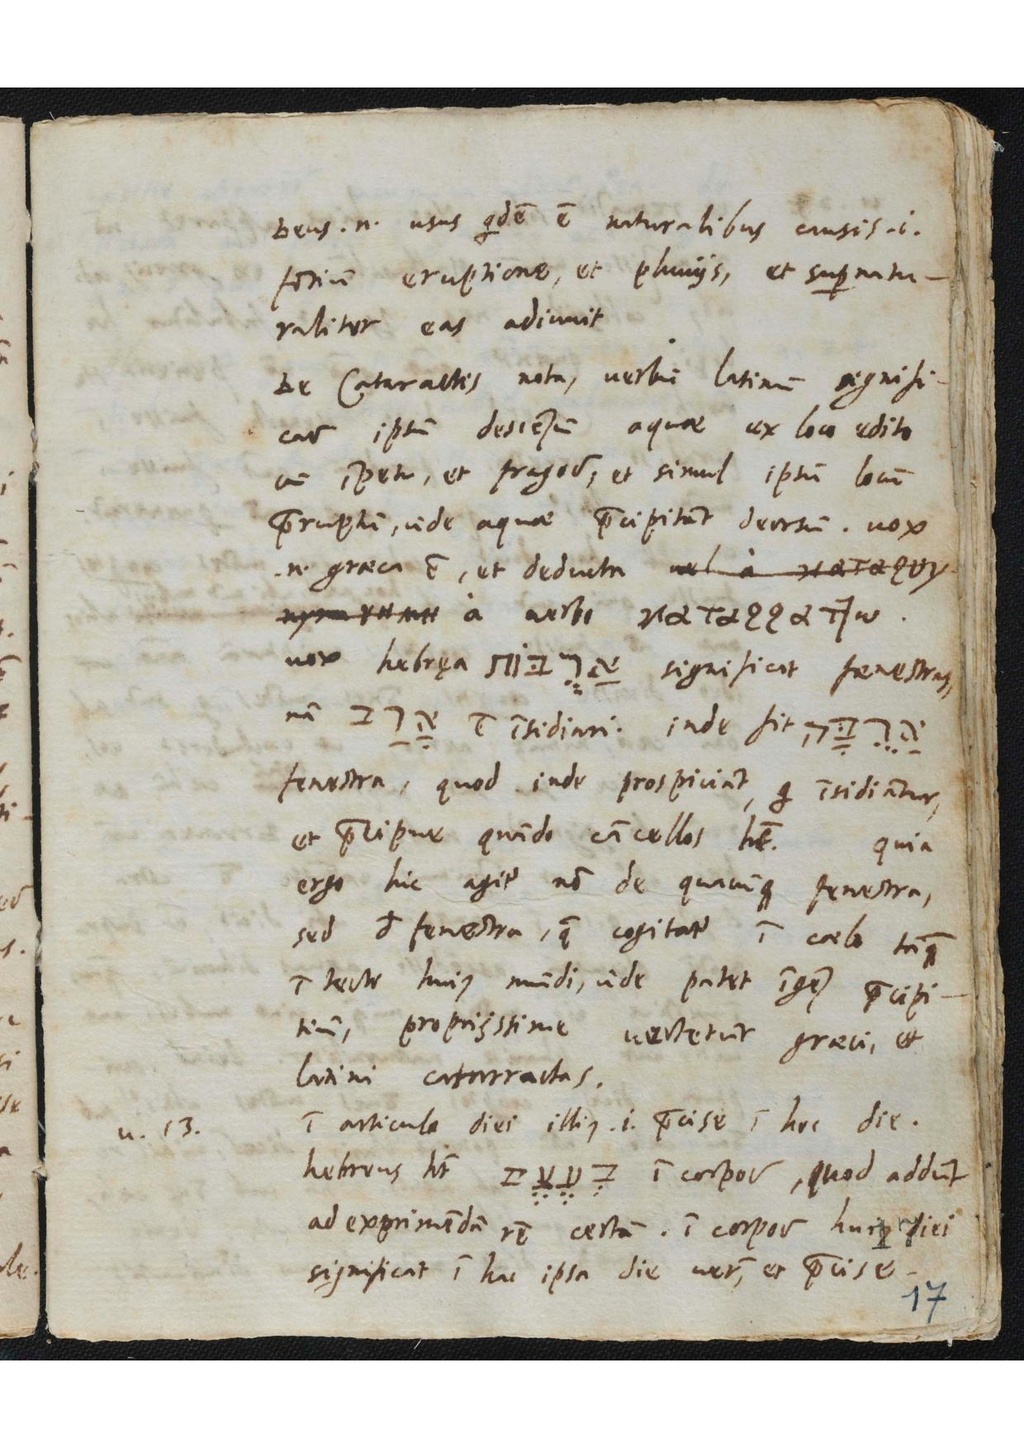 Deus .n. usus qdē ē naturalibus causis .i.
fōtiū eruptione, et pluvijs, et supnatu-
raliter eas adiuvit
De Cataractis nota, verbū latinū signifi-
car iptū descēsū aquæ ex loco edito
cū īpetu, et fragor, et simul iptū locū
p̄ruptū, ūde aquæ p̄cipitāt deorsū. vox
.n. græca ē, et deducta vel à καταρυ
à verbo καταρρατ]ω.
vox hebręa אֲרֻבּוֹת significat fenestras,
nā אָרַב ē īsidiari. inde fit אֲרֻבָּה
fenestra, quod inde prospiciāt, q īsidiātur,
et p̄cipue quādo cācellos hēt. quia
ergo hic agit̄ nō de quacūq fenestra,
sed d̄ fenestra, q̄ cogitat̄ ī cœlo tāq̄
ī tecto huiꝰ mūdi, ūde patet īgēs p̄cipi-
tiū, proprijssime vertetur græci, et
latini catarractas.
v. 13. ī articulo diei illiꝰ .i. p̄cise ī hoc die.
hebreus hēt בְּעֶצֶם ī corpor, quod addūt
ad exprimēdā rē certā. ī corpor huiꝰ diei
significat ī hac ipsa die ver, et p̄cise
17